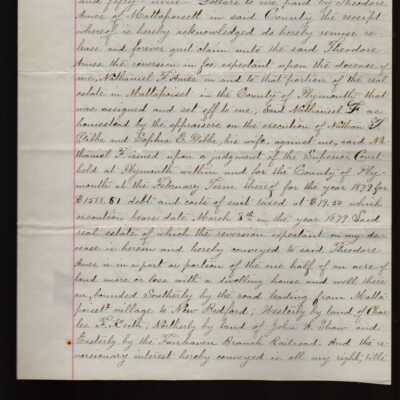 and fifty nine Dollars to me paid by Theodore
Ames of Mattapoisett in said County the receipt
whereof is hereby acknowledged do hereby remise re-
lease and forever quit claim unto the said Theodore
Ames the reversion in fee expectant upon the decease of
me, Nathaniel F. Ames in and to that portion of the real
estate in Mattapoisett in the County of Plymouth that
was assigned and set off to me, said Nathaniel F as
homestead by the appraisers on the execution of Nathan
and Sophia E. his wife, against me, said Na-
thaniel F. issued upon a judgment of the Superior Court
held at Plymouth within and for the County of Ply-
mouth at the February Term thereof for the year 1879 for
$1588.81 debt and costs of suit taxed at $19.50 which
execution bears date March 8th in the year 1879. Said
real estate of which the reversion expectant on my de-
cease is herein and hereby conveyed to said Theodore
Ames is in a part or portion of the one half of an acre of
land more or less with a dwelling house and well there
on, bounded Southerly by the road leading from Matta-
poisett village to New Bedford, Westerly by land of Char-
les F. Northerly by land of John A. Shaw and
Easterly by the Fairhaven Branch Railroad. And the re-
versionary interest hereby conveyed is all my right, title